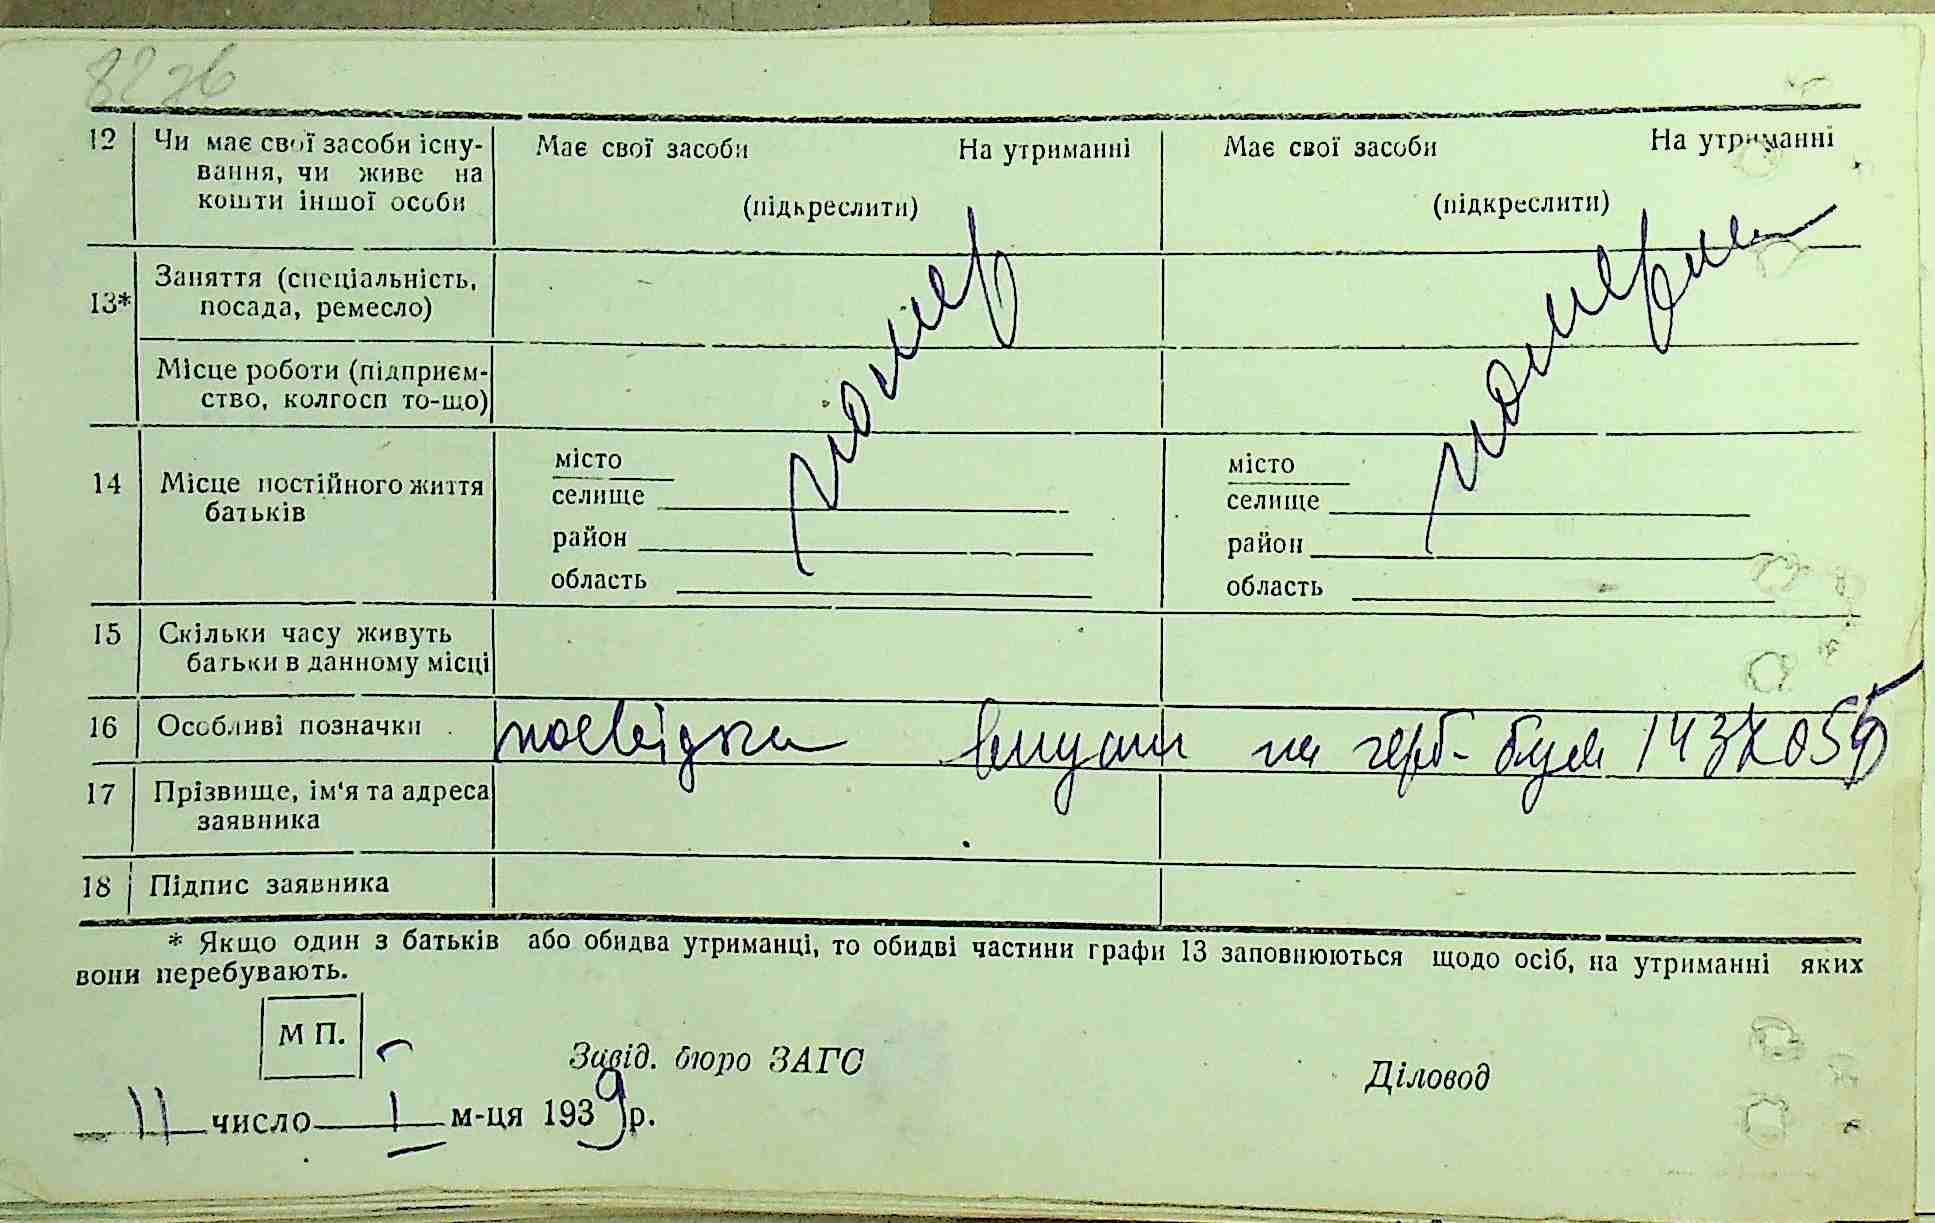 8226
12 Чи має свої засоби існу- Має свої засоби На утриманні Має свої засоби На утриманні
вання, чи живе на
кошти іншої особи (підкреслити) (підкреслити)
13* Заняття (спеціальність,
посада, ремесло) помер померли
Місце роботи (підприєм-
ство, колгосп то-що)
14 Місце постійного життя місто місто
батьків селище селище
район район
область область
15 Скільки часу живуть
батьки в данному місці
16 Особливі позначки посвідка на герб. бум
17 Прізвище, ім'я та адреса
заявника
18 Підпис заявника
* Якщо один з батьків або обидва утриманці, то обидві частини графи 13 заповнюються щодо осіб, на утриманні яких
вони перебувають.
М П.
Завід. бюро ЗАГС Діловод
11 число I м-ця 1939 р.